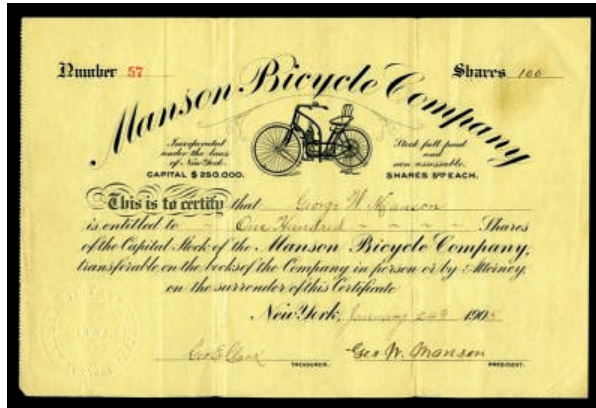 Number 57
Shares 100
Manson Bicycle Company
Incorporated
under the laws
of New York.
CAPITAL $250.000.
Stock full paid
and
non assessable.
SHARES $5⁰⁰ EACH.
This is to certify that George W. Manson
is entitled to One Hundred Shares
of the Capital Stock of the Manson Bicycle Company,
transferable on the books of the Company in person or by Attorney
on the surrender of this Certificate
New York, January 24th 1905
TREASURER. Geo W. Manson PRESIDENT.